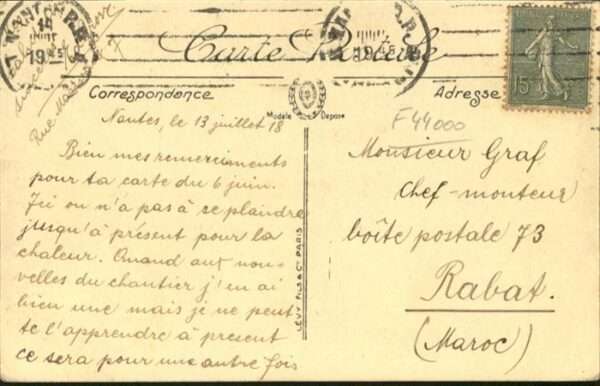 NANTES R.P.
14
JUIL
1918
Carte Postale
Correspondance
Modèle Déposé
Adresse
15
F 44000
Nantes, le 13 juillet 18
Bien mes remerciments
pour ta carte du 6 juin.
Ici on n'a pas à se plaindre
jusqu'à présent pour la
chaleur. Quand aux nou-
velles du chantier j'en ai
bien une mais je ne peut
te l'apprendre à présent
ce sera pour une autre fois
LÉVY FILS & Cie PARIS
Monsieur Graf
Chef-monteur
boîte postale 73
Rabat.
(Maroc)